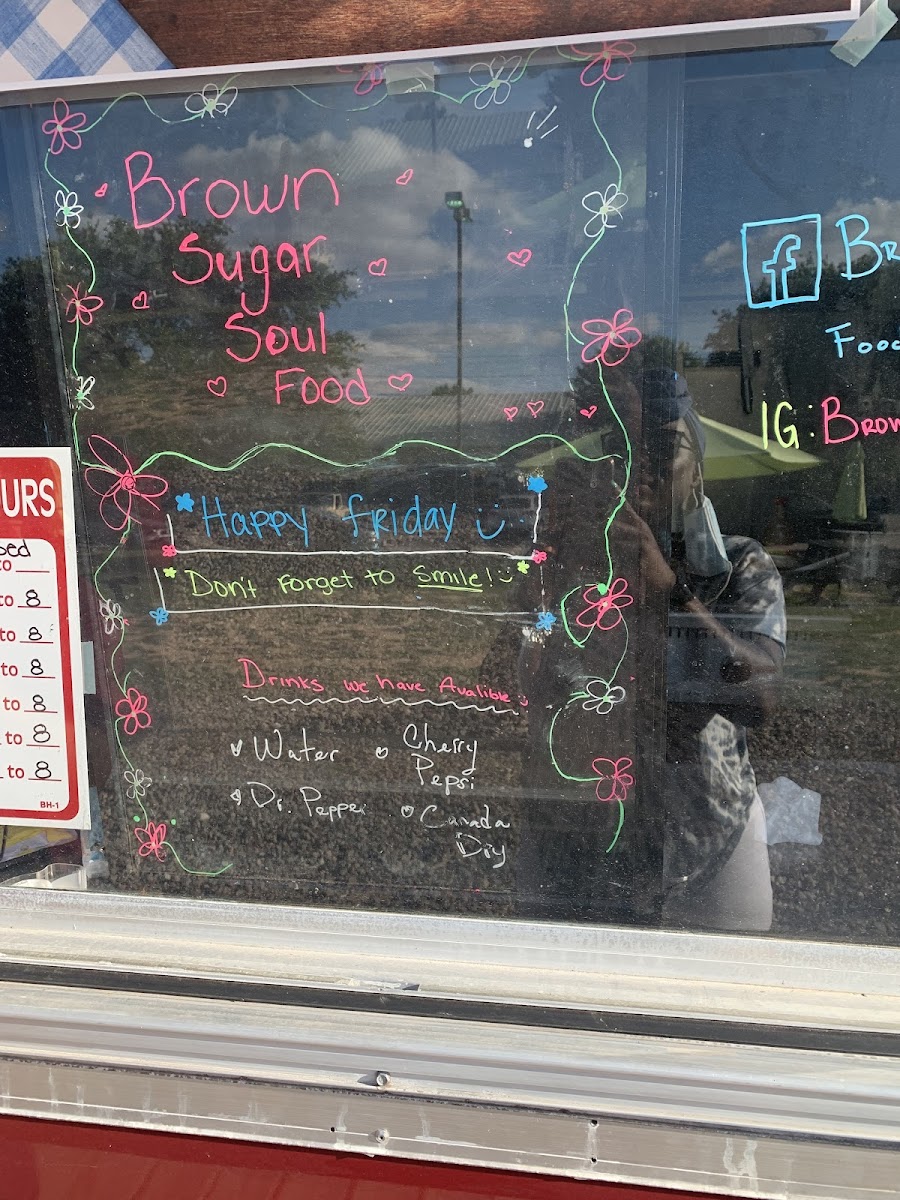 Brown
Sugar
Soul
Food
Happy friday
Don't Forget to Smile!
Drinks we have Avalible
Water
Cherry
Pepsi
Dr. Pepper
Canada
Dry
f
Br
Food
IG: Brow
OURS
sed
to
to 8
to 8
to 8
to 8
to 8
to 8
BH-1